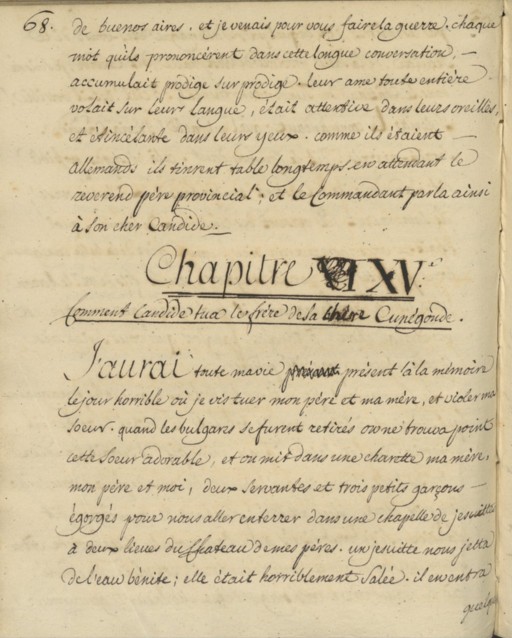 68. de buenos aires. et je venais pour vous faire la guerre. chaque
mot quils prononcérent dans cette longue conversation,
accumulait prodige sur prodige. leur ame toute entière
volait sur leur langue, était attentive dans leurs oreilles,
et étincelante dans leurs yeux. comme ils étaient
allemands ils tinrent table longtemps, en attendant le
reverend père provincial; et le Commandant parla ainsi
à son cher Candide.
Chapitre XV.e
Comment Candide tua le frère de sa chère Cunégonde.
J'aurai toute ma vie présent à la mémoire
le jour horrible où je vis tuer mon père et ma mère, et violer ma
soeur. quand les bulgares se furent retirés on ne trouva point
cette soeur adorable, et on mit dans une charette ma mère,
mon père et moi, deux servantes et trois petits garçons
égorgés pour nous aller enterrer dans une chapelle de jesuittes
à deux lieues du Chateau de mes pères. un jesuitte nous jetta
de l'eau bénite; elle était horriblement salée. il en entra
quelques